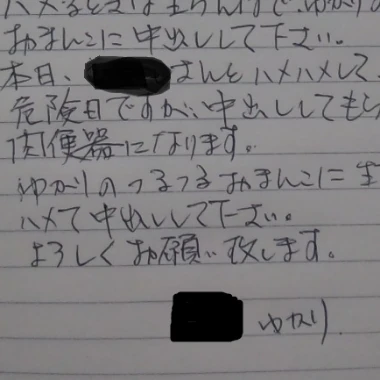 ハメるときは生ちんぽで、ゆかりの
おまんこに中出しして下さい。
本日、さんとハメハメして
危険日ですが、中出ししてもら
肉便器になります。
ゆかりのつるつるおまんこに生
ハメて中出しして下さい。
よろしくお願い致します。
ゆかり